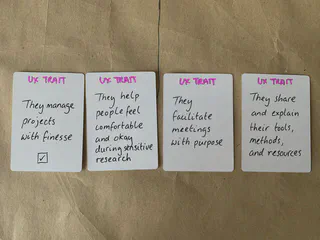 UX TRAIT
They manage
projects
with finesse
UX TRAIT
They help
people feel
comfortable
and okay
during sensitive
research
UX TRAIT
They
facilitate
meetings
with purpose
UX TRAIT
They share
and explain
their tools,
methods,
and resources